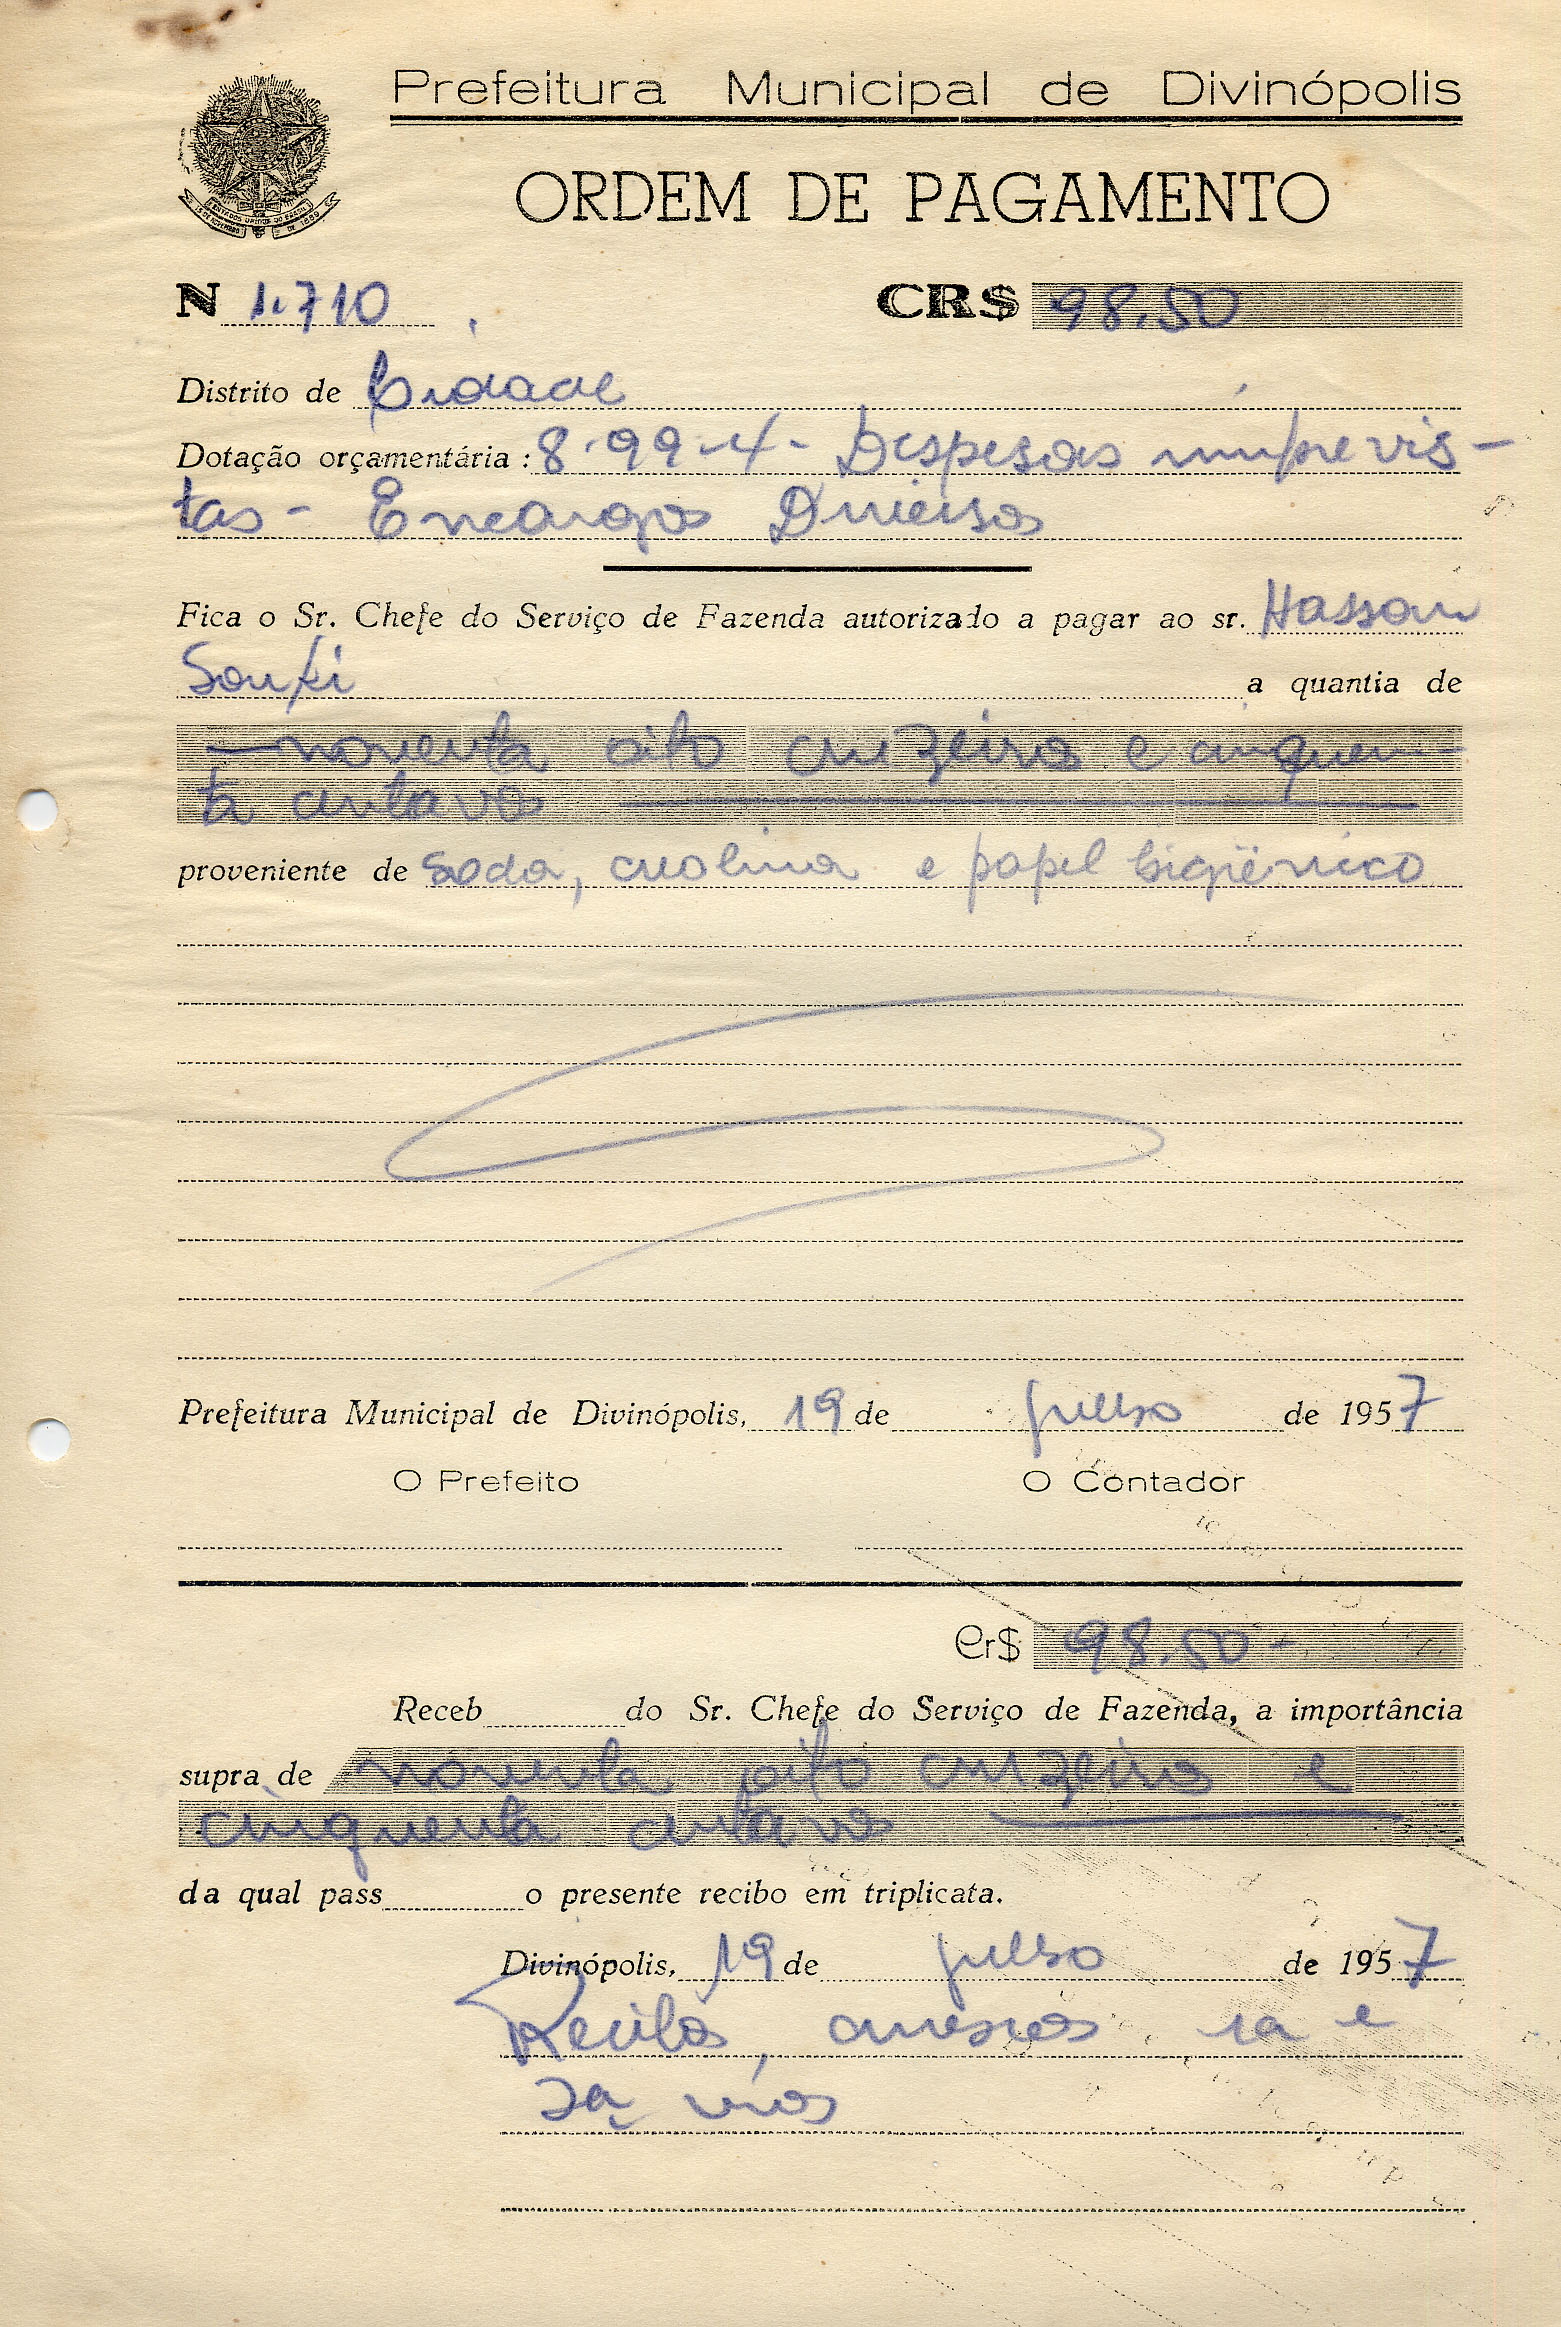 Prefeitura Municipal de Divinópolis
ORDEM DE PAGAMENTO
N 1.710 CR$ 98,50
Distrito de Cidade
Dotação orçamentária: 8-99-4- Despesas imprevis-
tas - Encargos Diversos
Fica o Sr. Chefe do Serviço de Fazenda autorizado a pagar ao sr. Hassan
Souki a quantia de
noventa oito cruzeiros e cinquen-
ta centavos
proveniente de Soda, creolina e papel higiênico
Prefeitura Municipal de Divinópolis, 19 de julho de 1957
O Prefeito O Contador
Cr$ 98,50-
Receb do Sr. Chefe do Serviço de Fazenda, a importância
supra de noventa oito cruzeiros e
cinquenta centavos
da qual pass o presente recibo em triplicata.
Divinópolis, 19 de julho de 1957
Recibos, anexos 1a e
2a vias